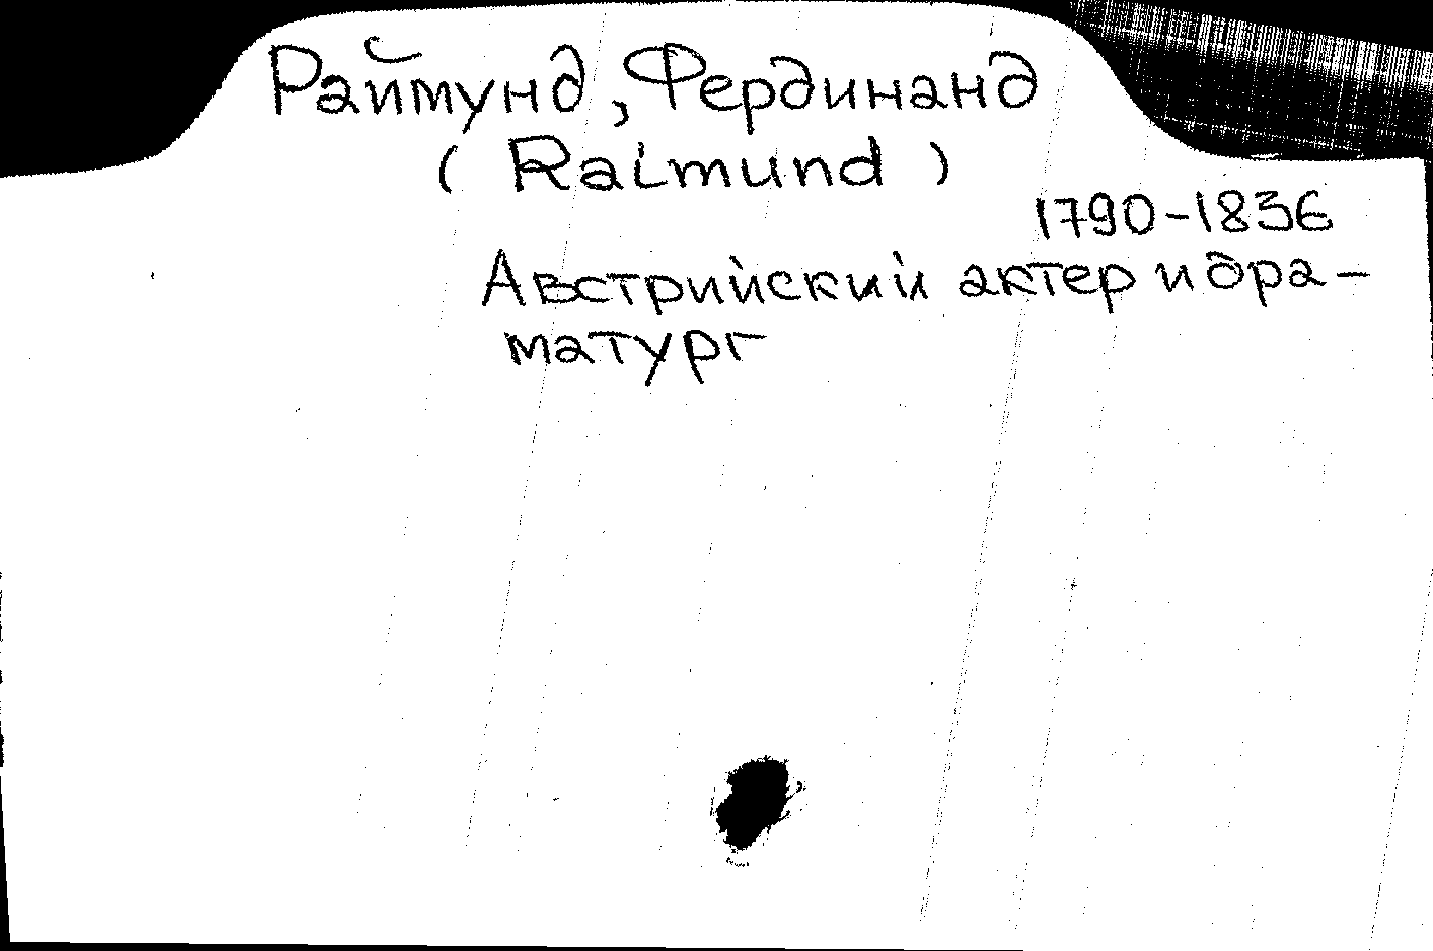 Раймунд, Фердинанд
(Raimund)
1790-1836
Австрийский актер и дра-
матург